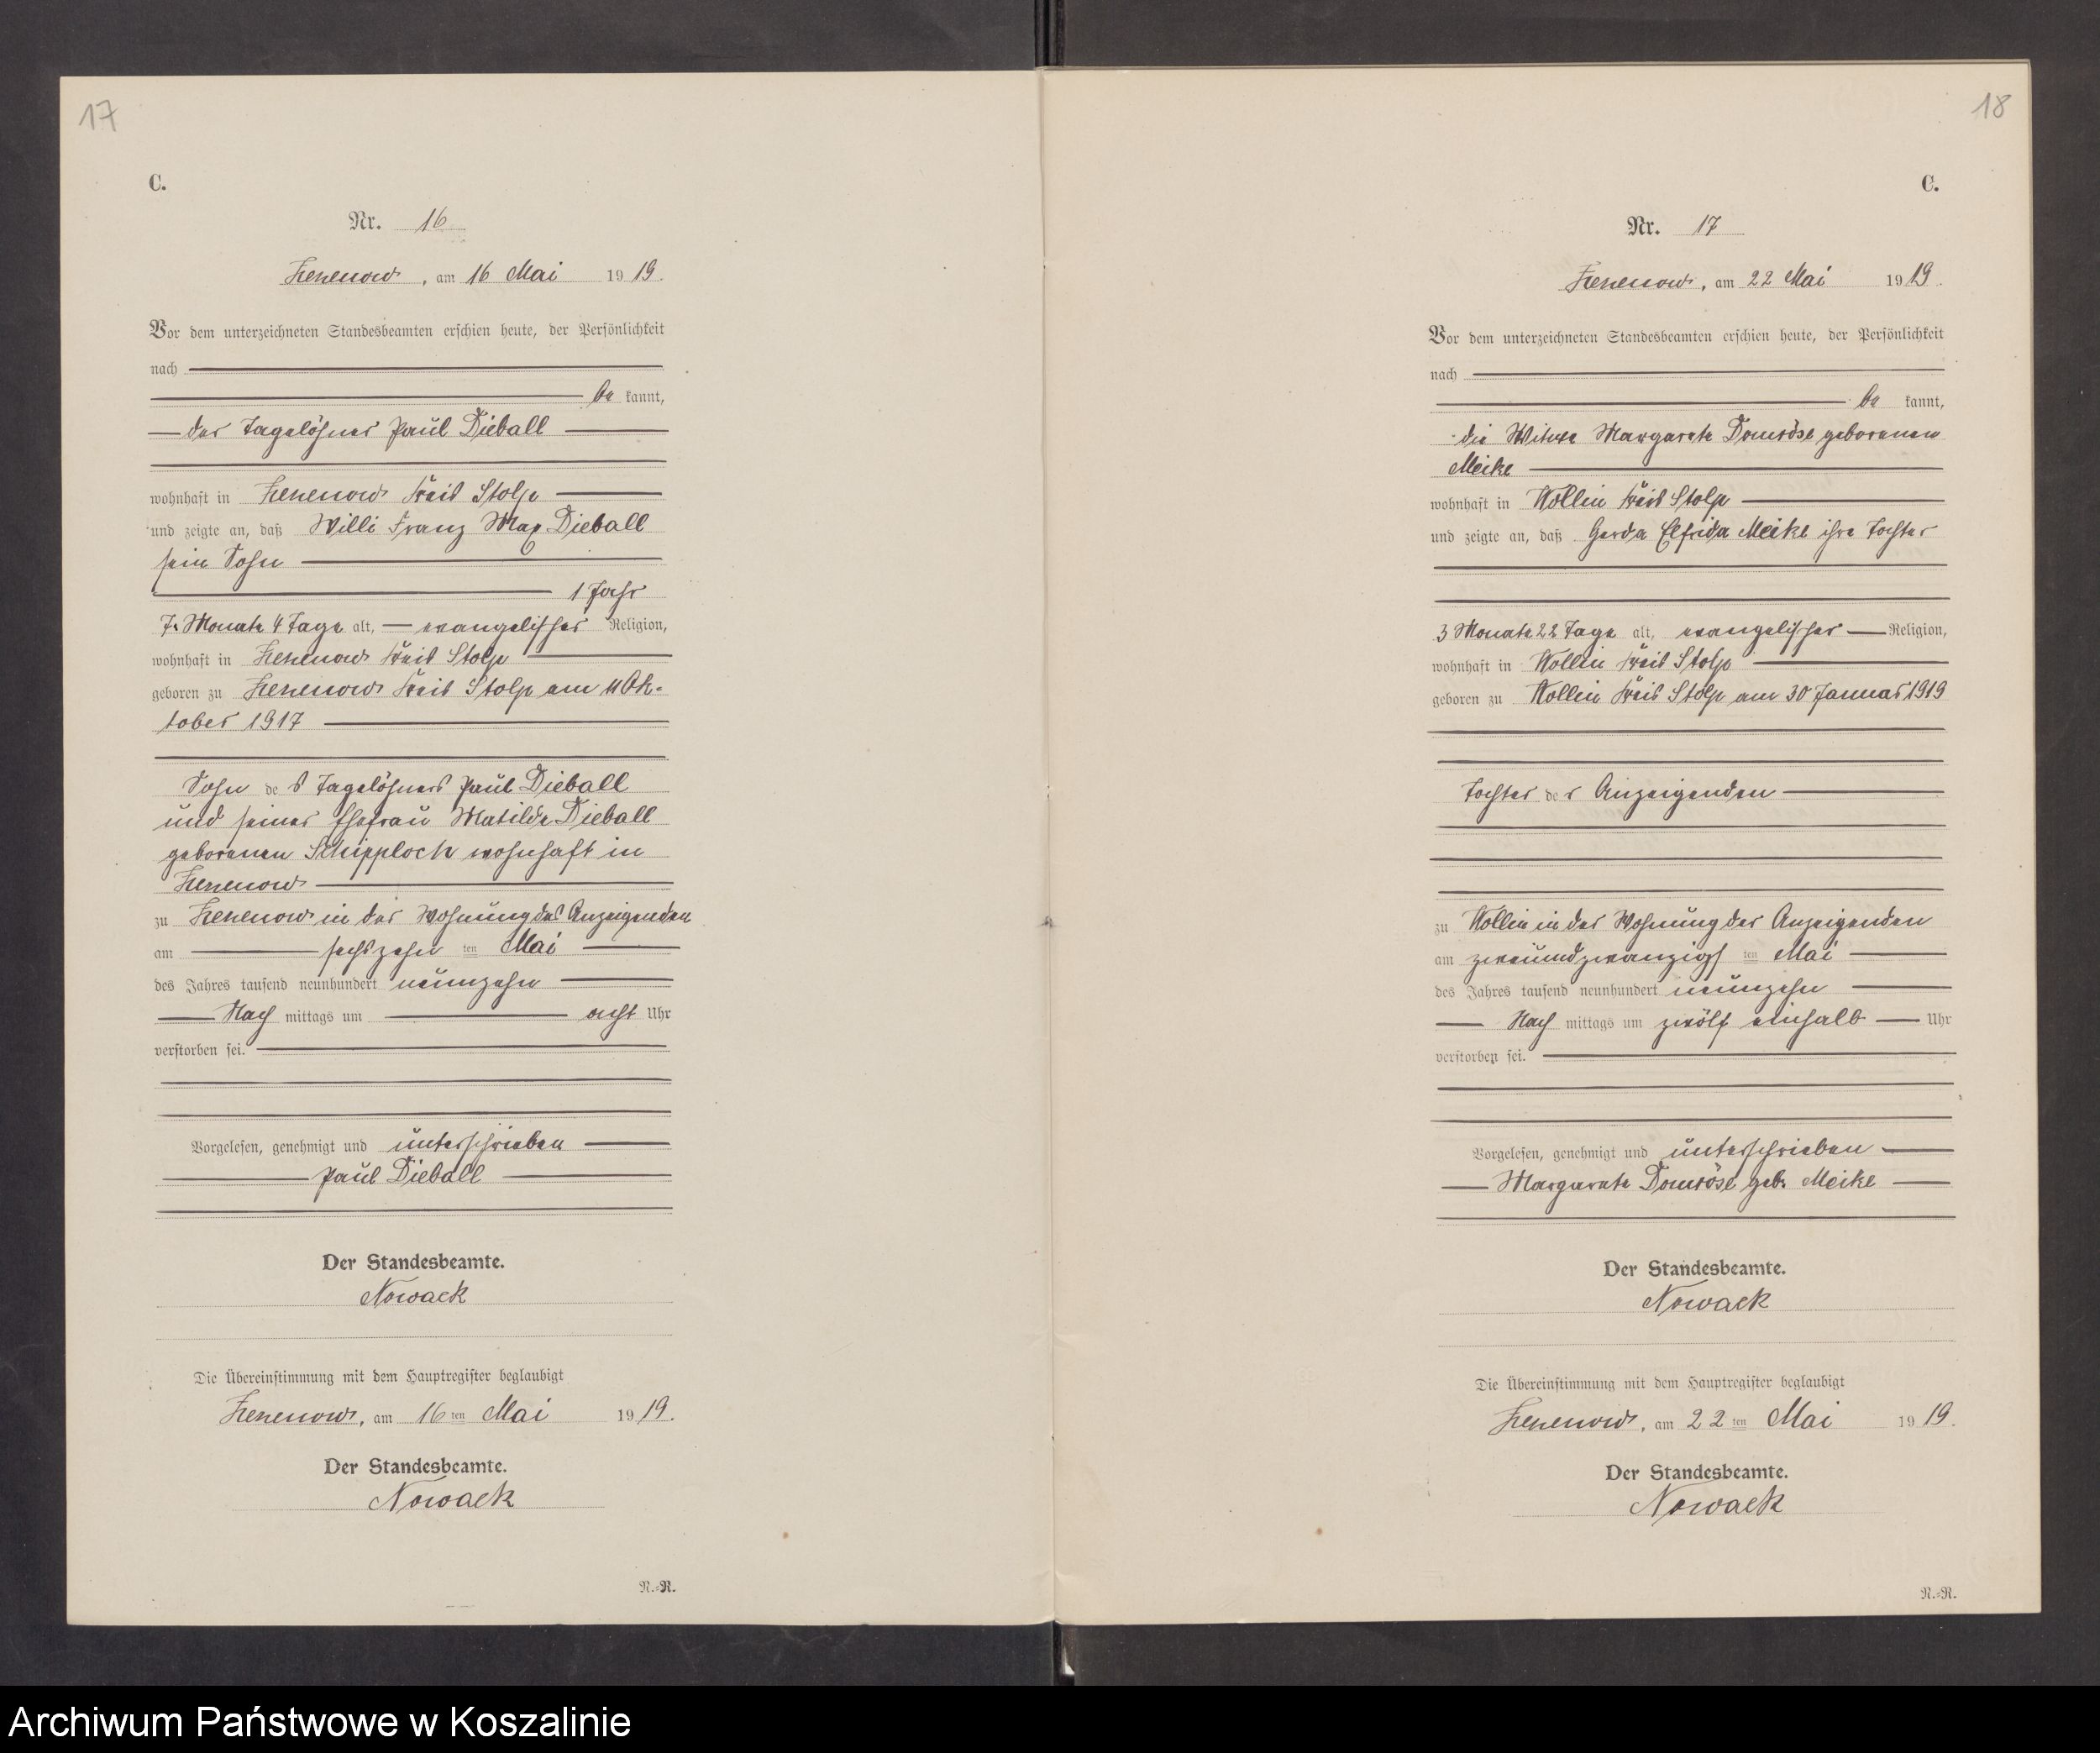 17
C.
Nr. 16
Zezenow, am 16 Mai 1919.
Vor dem unterzeichneten Standesbeamten erschien heute, der Persönlichkeit
nach
be kannt,
der Tagelöhner Paul Dieball
wohnhaft in Zezenow Kreis Stolp
und zeigte an, daß Willi Franz Max Dieball
sein Sohn
1 Jahr
7 Monate 4 Tage alt, evangelischer Religion,
wohnhaft in Zezenow Kreis Stolp
geboren zu Zezenow Kreis Stolp am 11 Ok-
tober 1917
Sohn des Tagelöhners Paul Dieball
und seiner Ehefrau Matilde Dieball
geborenen Schipplock wohnhaft in
Zezenow
zu Zezenow in der Wohnung des Anzeigenden
am sechszehn ten Mai
des Jahres tausend neunhundert neunzehn
Nach mittags um acht Uhr
verstorben sei.
Vorgelesen, genehmigt und unterschrieben
Paul Dieball
Der Standesbeamte.
Nowack
Die Übereinstimmung mit dem Hauptregister beglaubigt
Zezenow, am 16 ten Mai 1919.
Der Standesbeamte.
Nowack
N.-R.
18
C.
Nr. 17
Zezenow, am 22 Mai 1919.
Vor dem unterzeichneten Standesbeamten erschien heute, der Persönlichkeit
nach
be kannt,
die Witwe Margarete Domröse geborenen
Meike
wohnhaft in Wollin Kreis Stolp
und zeigte an, daß Gerda Elfrida Meike ihre Tochter
3 Monate 22 Tage alt, evangelischer Religion,
wohnhaft in Wollin Kreis Stolp
geboren zu Wollin Kreis Stolp am 30 Januar 1919
Tochter der Anzeigenden
zu Wollin in der Wohnung der Anzeigenden
am zweiundzwanzigs ten Mai
des Jahres tausend neunhundert neunzehn
Nach mittags um zwölf einhalb Uhr
verstorben sei.
Vorgelesen, genehmigt und unterschrieben
Margarete Domröse geb. Meike
Der Standesbeamte.
Nowack
Die Übereinstimmung mit dem Hauptregister beglaubigt
Zezenow, am 22 ten Mai 1919.
Der Standesbeamte.
Nowack
N.-R.
Archiwum Państwowe w Koszalinie